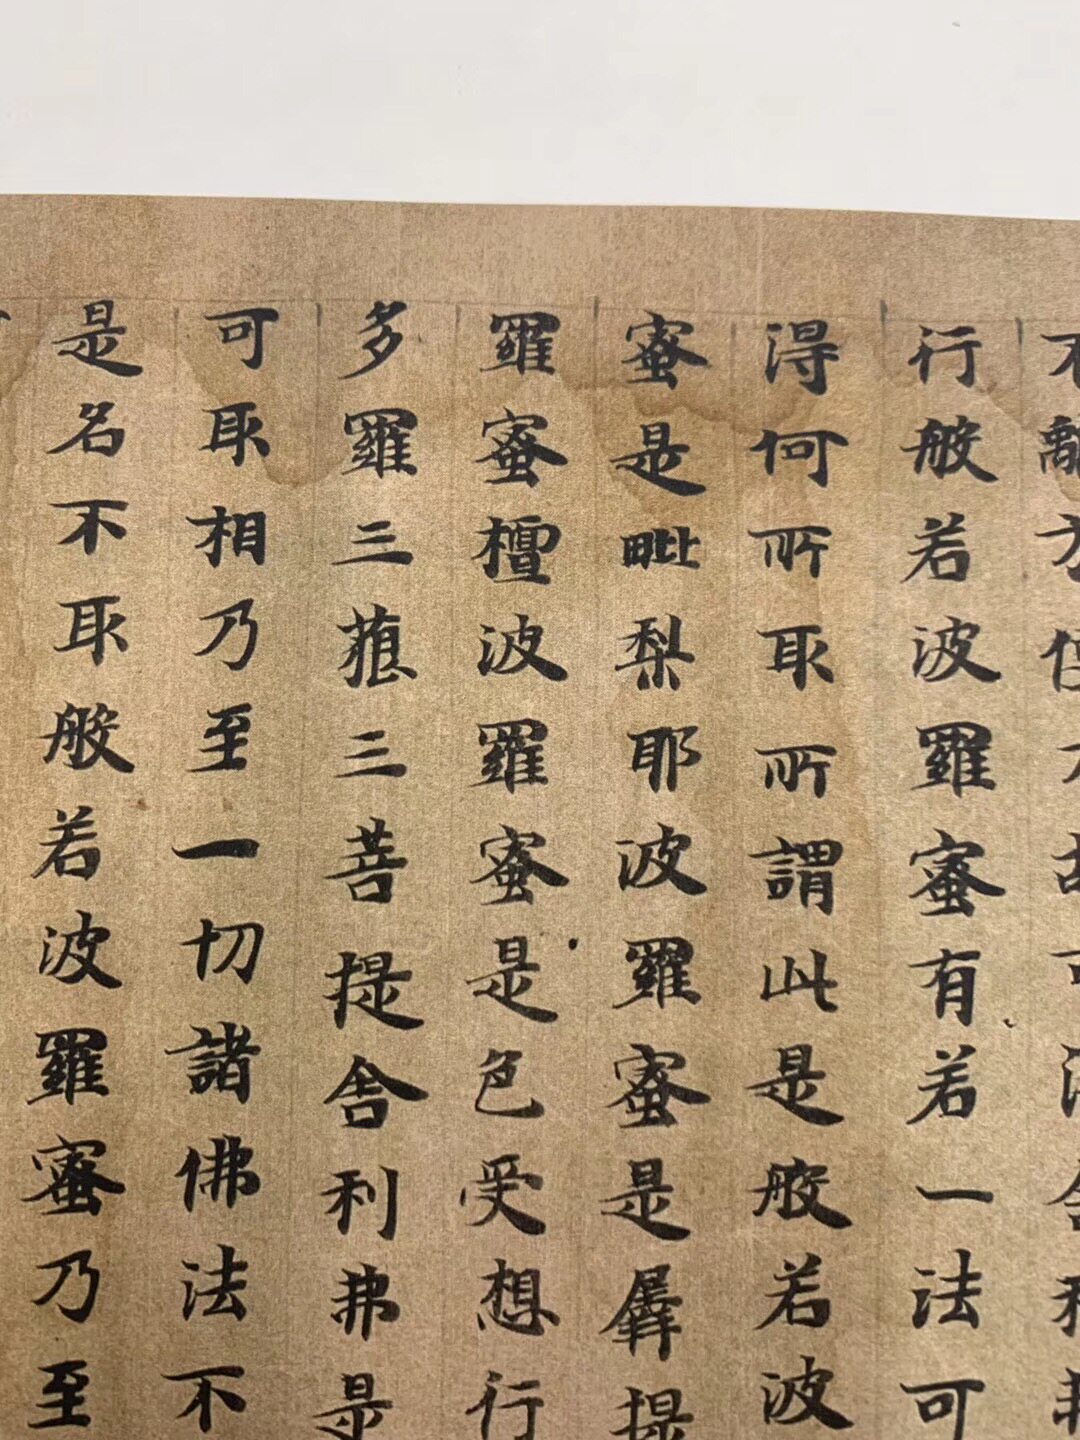 不離方便
行般若波羅蜜有若一法可
得何所取所謂此是般若波
蜜是毗梨耶波羅蜜是羼提
羅蜜檀波羅蜜是色受想行
多羅三藐三菩提舍利弗是
可取相乃至一切諸佛法不
是名不取般若波羅蜜乃至